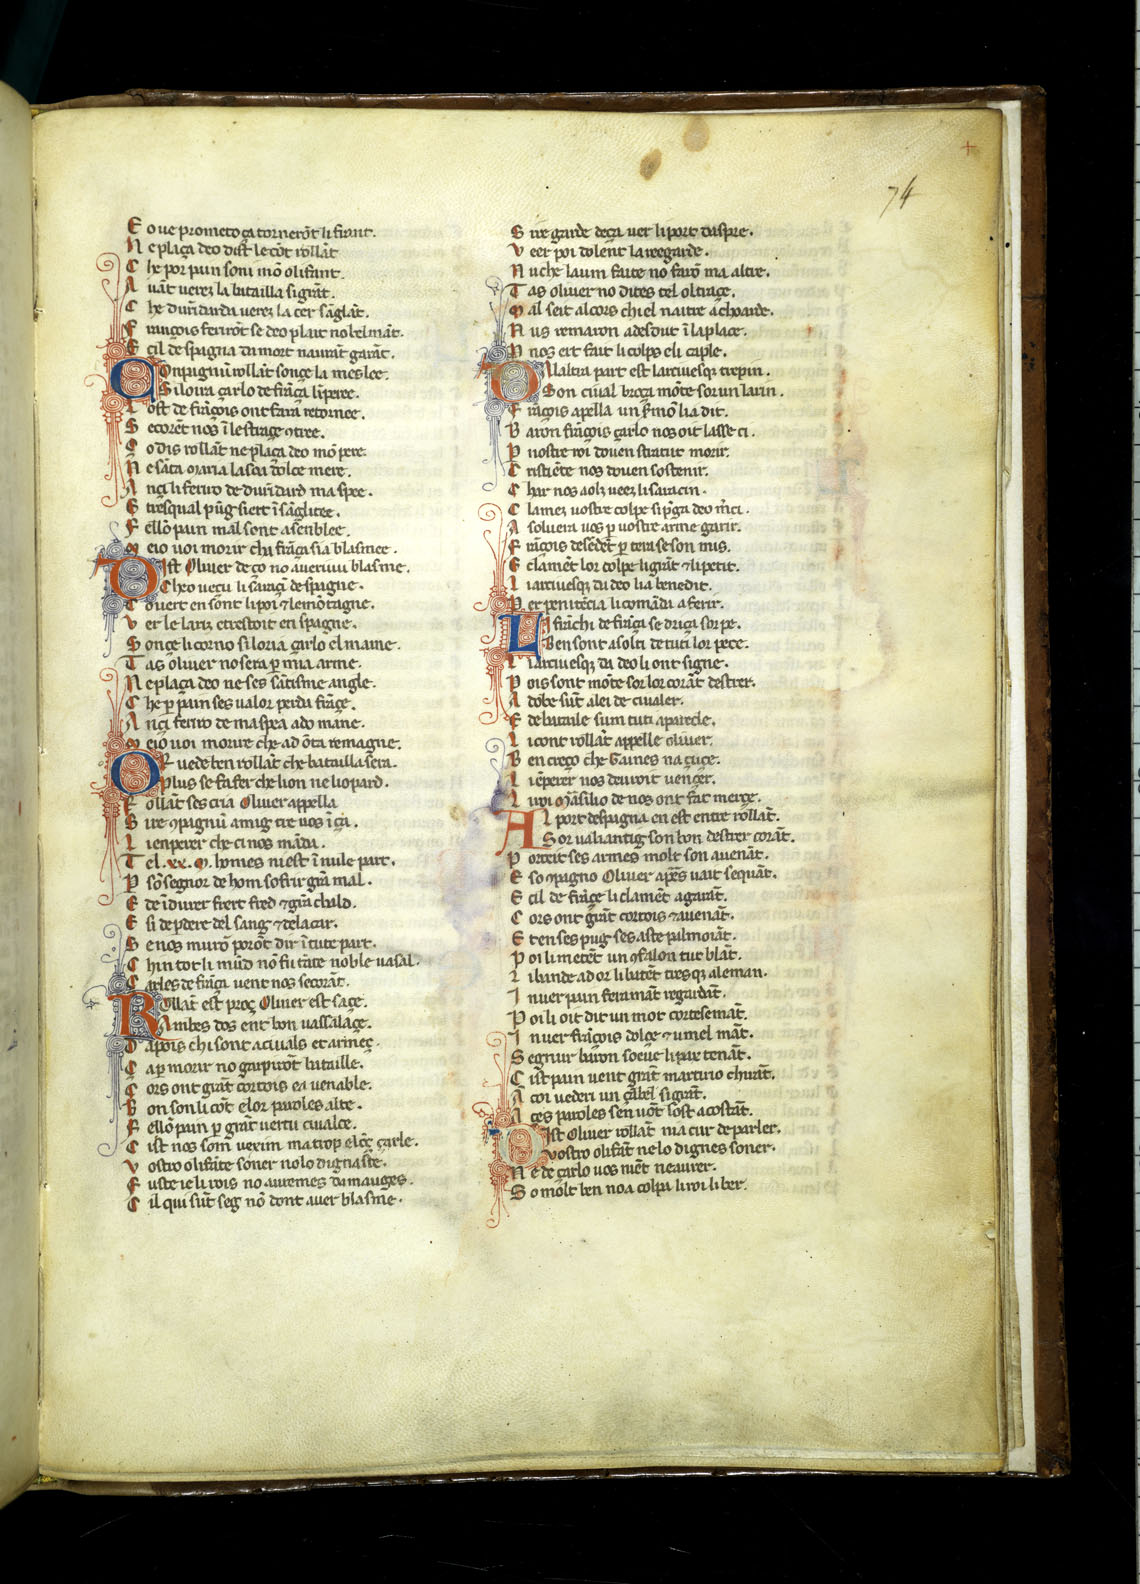 74
E o ue prometo ça tornerõt li firant.
N e plaça deo dist le cõt rollãt
C he por pain soni mõ olifant.
A uãt uerez la bataila si grãt.
C he duridarda uerez la cer sãglãt.
F rançois ferirõt se deo plait nobelmãt.
E cil de spagna da mort naurãt garãt.
C Onpagnũ rollãt sonçe la meslee.
Si loira çarlo de frãça lĩperee.
L ost de frãçois ont farã retornee.
S ecorẽt nos ĩ le strãge ꝯtree.
C o dis rollãt ne plaça deo mõ pere.
N e sãta maria la soa dolce mere.
A nçi feriro de durĩdard ma spee.
E tresqual pũg fiert ĩ sãglẽtee.
F ellõ pain mal sont asenblee.
M eio uoi morir cha frãça sia blasmee.
D ist Oliuer de ço no aueruu blasme.
Cheo ueçu li saraçĩ de spagne.
C ouert en sont li poi ⁊ le mõtagne.
V er le lariz e trestoit en spagne.
S onçe li corno si lo ira çarlo el maine.
T as oliuer no sera ꝑ mia arme.
N e plaça deo ne ses sãtisme angle.
C he ꝑ pain ses ualor perda frãçe.
A nçi feriro de ma spea ado mane.
M eio uoi morire che ad õta remagne.
O R uede ben rollãt che bataila sera.
Plus se fa fer che lion ne liopard.
R ollãt ses cria Oliuer appella
S ire ꝯpagnũ amig tre uos ĩ ça.
L i enperer che ci nos mãda.
T el .xx. M. homes ni est ĩ nule part.
P sõ segnor de hom sofrir grã mal.
E de ĩdurer freit fred ⁊ grã chald.
E si de ꝑdere del sang ⁊ de la car.
S e nos murõ porõt dir ĩ tute part.
C hin tot li mũd nõ fu tãte noble uasal.
C arles de frãça uent nos secorãt.
R Ollãt est proç Oliuer est saçe.
Ambes dos ent bon uassalaçe.
D apois chi sont a ciuals et armeç.
C aꝑ morir no garpirõt bataille.
C ors ont grãt cortois ea uenable.
B on son li cõt e lor paroles alte.
F ellõ pain ꝑ grãt uertu ciualce.
C ist nos som uexim ma trop e lõç çarle.
V ostro olifãte soner no lo dignaste.
F uste ie li rois no auremes damauges.
C il qui sũt seg nõ dont auer blasme.
S ire garde deça uer li port daspre.
V eer poi dolent la reegarde.
N uche la um faite no farõ ma altre.
T as oliuer no dites tel oltraçe.
M al seit al cors chi el naitre a choarde.
N us remaron ad estout ĩ la place.
P nos ert fait li colps e li caple.
D Alaltra part est larciuesq; trepin.
Son ciual broça mõte sor un larin.
F rãçois apella un smõ li a dit.
B aron frãçois çarlo nos oit lasse ci.
P nostre roi douen stratut morir.
C ristiẽte nos douen sostenir.
C har nos aolz ueez li saracin.
C lamez uostre colpe si ꝑga deo mẽci.
A soluera uos ꝑ uostre arme garir.
F rãçois desẽdẽt ꝑ tera se son mis.
E clamẽt lor colpe li grãt ⁊ li petit.
L i arciuesq; da deo li a benedit.
P er penitẽcia li comãda a ferir.
L I frãchi de frãça se driça sor pe.
Ben sont asolti de tuti lor peçe.
L i arciuesq; da deo li ont signe.
P ois sont mõte sor lor corãt destrer.
A dobe sũt a lei de ciualer.
E de bataile sum tuti apareçle.
L i cont rollãt appelle oliuer.
B en creço che Gaines na çuçe.
L i ẽperer nos deuroit uençer.
L i roi Mãsilio de nos ont fat merçe.
A L port de spagna en est entre rollãt.
Sor ualiantig son bon destrer corãt.
P orteit ses armes molt son auenãt.
E so ꝯpagno Oliuer apres uait sequãt.
E cil de frãçe li clamẽt a garãt.
C ors ont grãt cortois ⁊ auenãt.
E ten ses pug ses aste palmoiãt.
P oi li metẽt un ꝯfalon tut blãt.
L i bande ad or li batẽt tresq; al eman.
I nuer pain feramãt regardãt.
P oi li oit dit un mot cortesemãt.
I nuer frãçois dolçe ⁊ umel mãt.
S egnur baron soeue li pax tenãt.
C ist pain uent grãt martirio chirãt.
A coi uederi un çãbel si grãt.
A çes paroles sen uõt sost acostãt.
D ist Oliuer rollãt ma cur de parler.
Vostro olifãt ne lo dignes soner.
N e de çarlo uos niẽt ne aurer.
S o mõlt ben no a colpa li roi li ber.